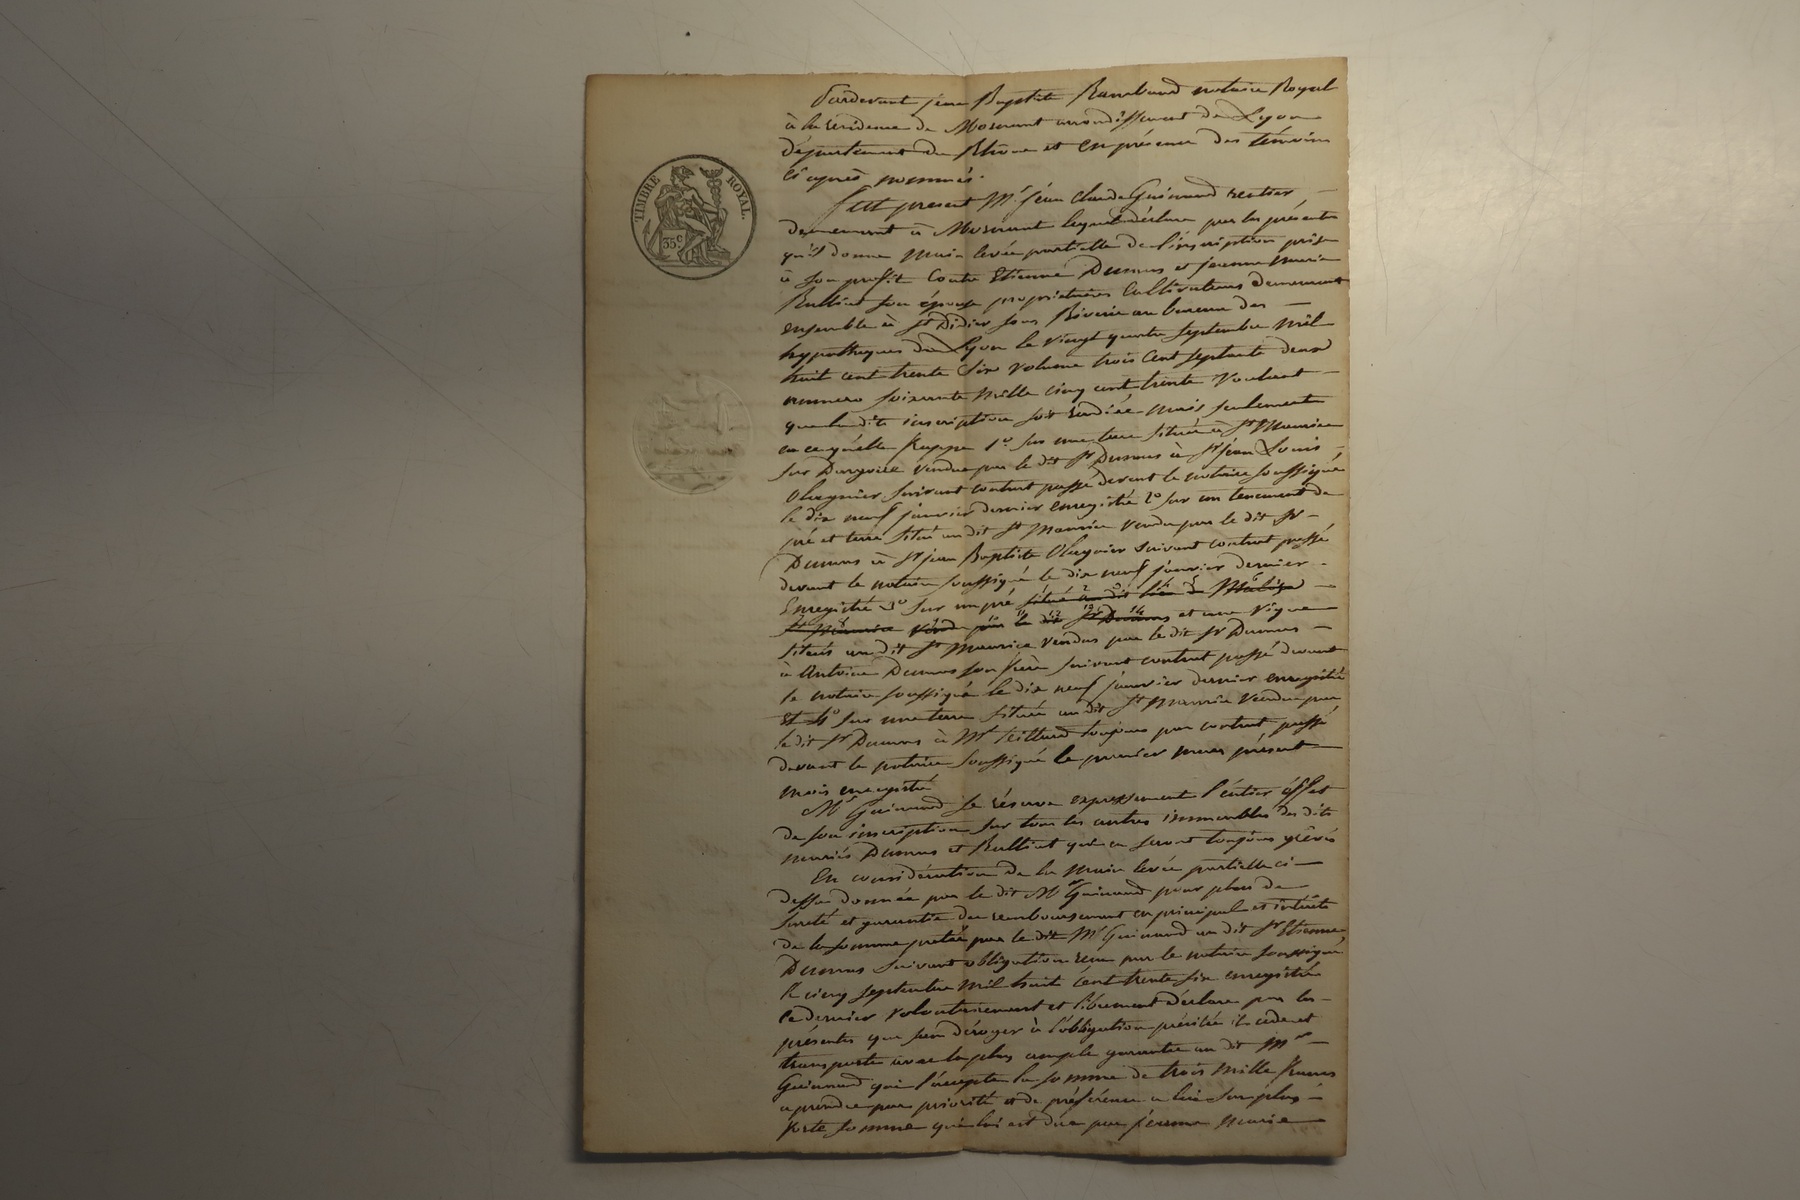 TIMBRE ROYAL.
35c
Pardevant jean Baptiste Rambaud notaire Royal
à la résidence de Mornant arrondissement de Lyon
département du Rhône et en présence des témoins
ci après nommés.
fut present Mr. jean Claude Guinand rentier
demeurant à Mornant lequel déclare par les présentes
qu'il donne main levée partielle de l'inscription prise
à son profit Contre Etienne Dumas et jeanne Marie
son épouse propriétaires Cultivateurs demeurant
ensemble à St Didier sous Riverie au bureau des
hypothèques de Lyon le vingt quatre septembre mil
huit cent trente Six volume trois Cent septante deux
numero soixante mille cinq cent trente Voulant
que la dite inscription soit radiée mais seulement
en ce qu'elle frappe 1o sur une terre située à St Maurice
sur Dargoire vendue par le dit Sr Dumas à Sr jean Louis
suivant contrat passé devant le notaire soussigné
le dix neuf janvier dernier enregistré 2o sur un tenement de
pré et terre situé au dit St Maurice Vendu par le dit Sr
Dumas à Sr jean Baptiste suivant contrat passé
devant le notaire soussigné le dix neuf janvier dernier
Enregistré 3o sur un pré situé au dit lieu de
St Maurice vendu par le dit Sr Dumas et une Vigne
situés au dit St Maurice vendus par le dit Sr Dumas
à Antoine Dumas son frère suivant contrat passé devant
le notaire soussigné le dix neuf janvier dernier enregistré
Et 4o sur une terre située au dit St Maurice Vendue par
le dit Sr Dumas à Mr toujours par contrat passé
devant le notaire soussigné le premier mars présent
mois enregistré
Mr Guinand se réserve expressement l'entier éffet
de son inscription sur tous les autres immeubles des dits
mariés Dumas et qui en seront toujours grêvés
En considération de la main levée partielle ci
dessus donnée par le dit Mr Guinand pour plus de
sureté et garantie du remboursement en principal et intérêts
de la somme pretée par le dit Mr Guinand au dit Sr Etienne
Dumas suivant obligation reçue par le notaire soussigné
le cinq septembre mil huit cent trente six enregistrée
ce dernier volontairement et librement déclare par les
présentes que sans déroger à l'obligation précitée il cède et
transporte avec la plus ample garantie au dit Mr
Guinand qui l'accepte la somme de trois mille francs
a prendre par priorité et de préférence a lui sur plus
forte somme qui lui est due par jeanne marie